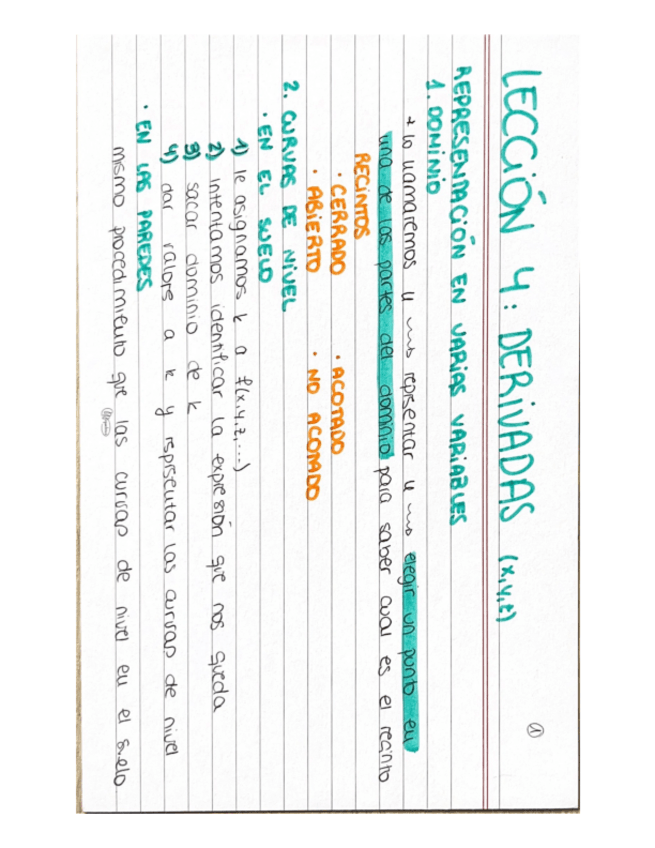 ①
LECCIÓN 4: DERIVADAS (x,y,z)
REPRESENTACIÓN EN VARIAS VARIABLES
1. DOMINIO
* lo llamaremos u → representar u → elegir un punto en
una de las partes del dominio para saber cual es el recinto
RECINTOS
· CERRADO · ACOTADO
· ABIERTO · NO ACOTADO
2. CURVAS DE NIVEL
· EN EL SUELO
1) le asignamos k a f(x,y,z,...)
2) intentamos identificar la expresión que nos queda
3) sacar dominio de k
4) dar valors a k y represeutar las curvas de nivel
· EN LAS PAREDES
mismo procedimiento que las curvas de nivel en el suelo